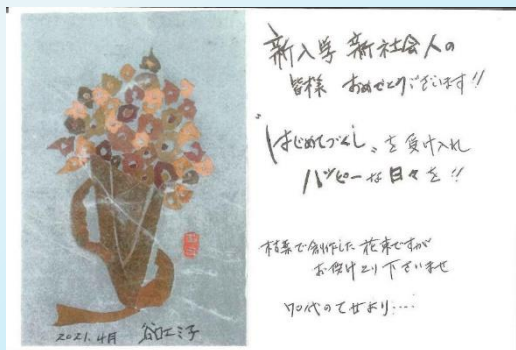 新入学 新社会人の
皆様 おめでとうございます!!
"はじめてづくし"を受け入れ
ハッピーな日々を!!
で創作した花束ですが
お受けとり下さいませ
70代のてせより....
2021.4月 谷口エミ子